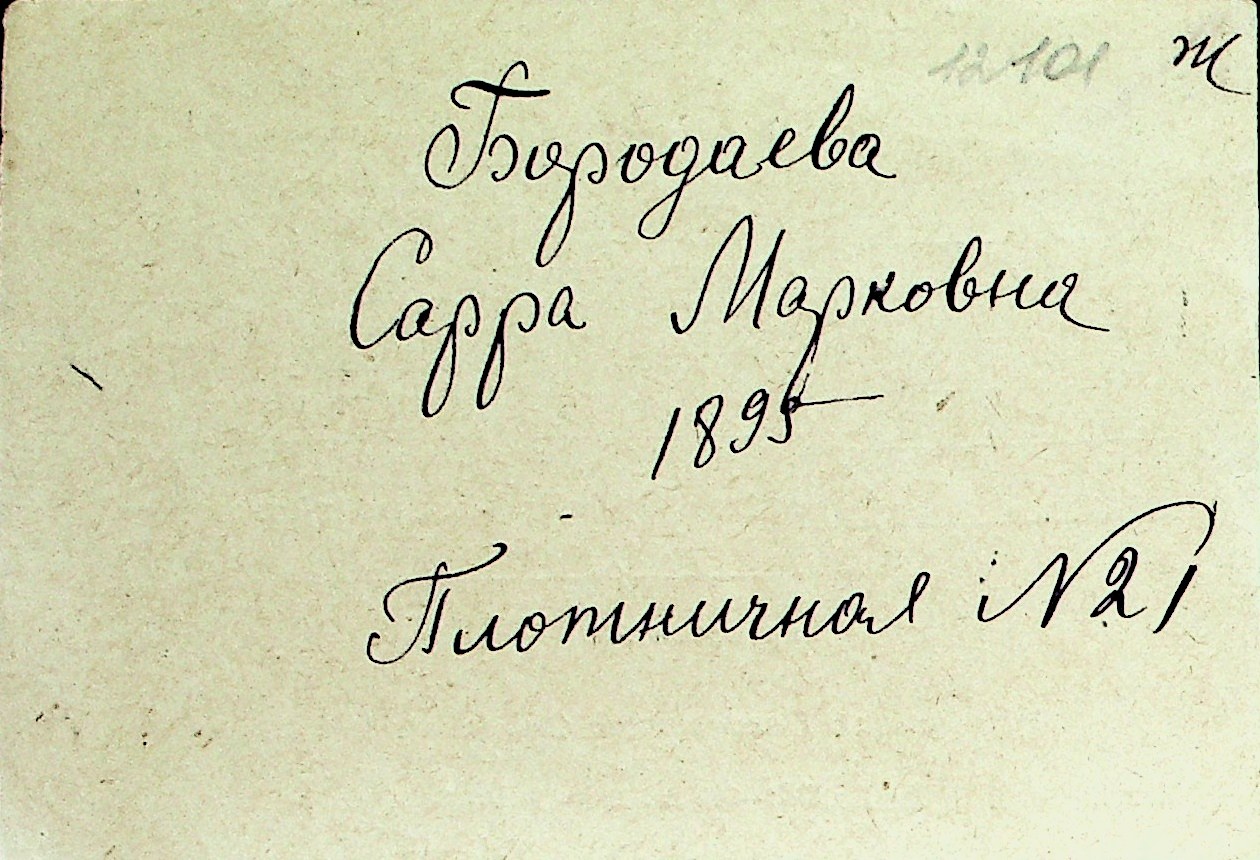 12101 Ж
Бородаева
Сарра Марковна
1895
Плотничная №21